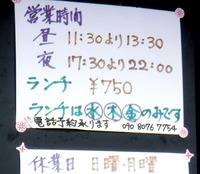 営業時間
昼 11:30より13:30
夜 17:30より22:00
ランチ ¥750
ランチは水木金のみです
電話予約承ります 090 8076 7754
休業日 日曜・月曜